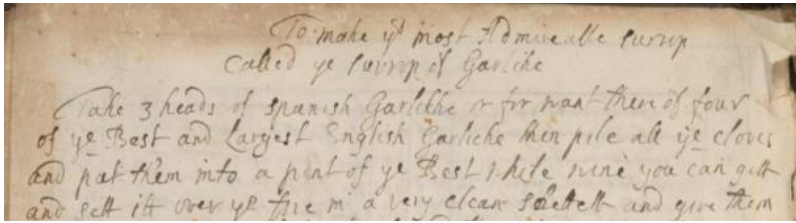 To make yt most Admireable surrup
Called ye surrop of Garlike
Take 3 heads of spanish Garlikke or for want there of four
of ye Best and Largest English Garlicke then pile all ye cloves
and put them into a pint of ye Best white wine you can gitt
and sett itt over ye fire in a very clean and give them